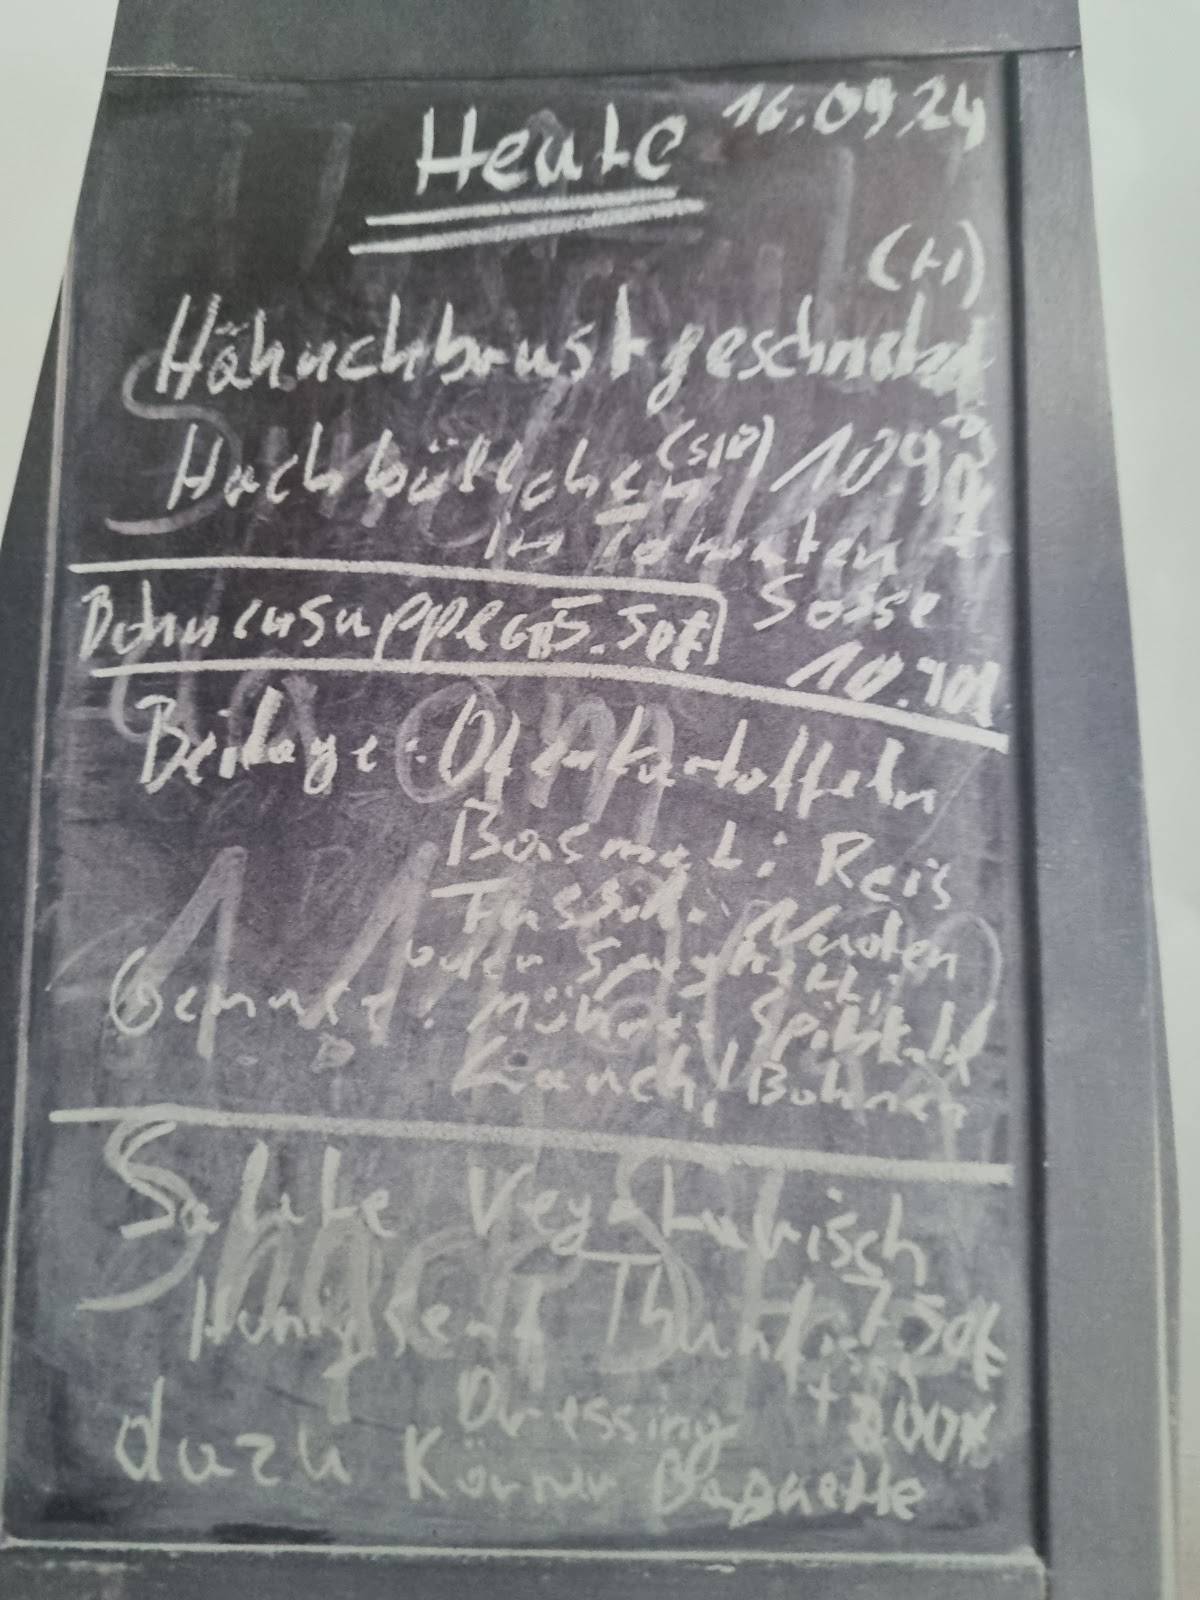 Heute 16.09.24
(H)
Hähnchbrustgeschnetz
Hackbällchen (S/R) 10.90€
in Tomaten
Sosse
Bohnensuppe 5.50€
10.70€
Beilage: Ofenkartoffeln
Basmati Reis
Fussili Nudeln
oder Spaghetti
Gemüse: Möhren, Spitzkohl
Lauch, Bohnen
Salate Vegetarisch
Honigsenf Thunfisch 7.50€
Dressing + 2.00€
dazu Körner Baguette